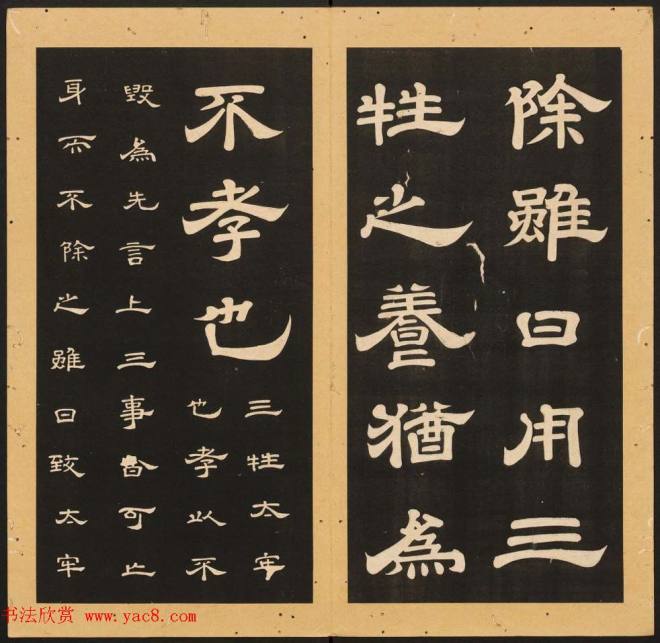 除雖日用三
牲之養猶為
不孝也
三牲太牢
也孝以不
毀為先言上三事皆可亡
身而不除之雖日致太牢
书法欣赏 www.yac8.com